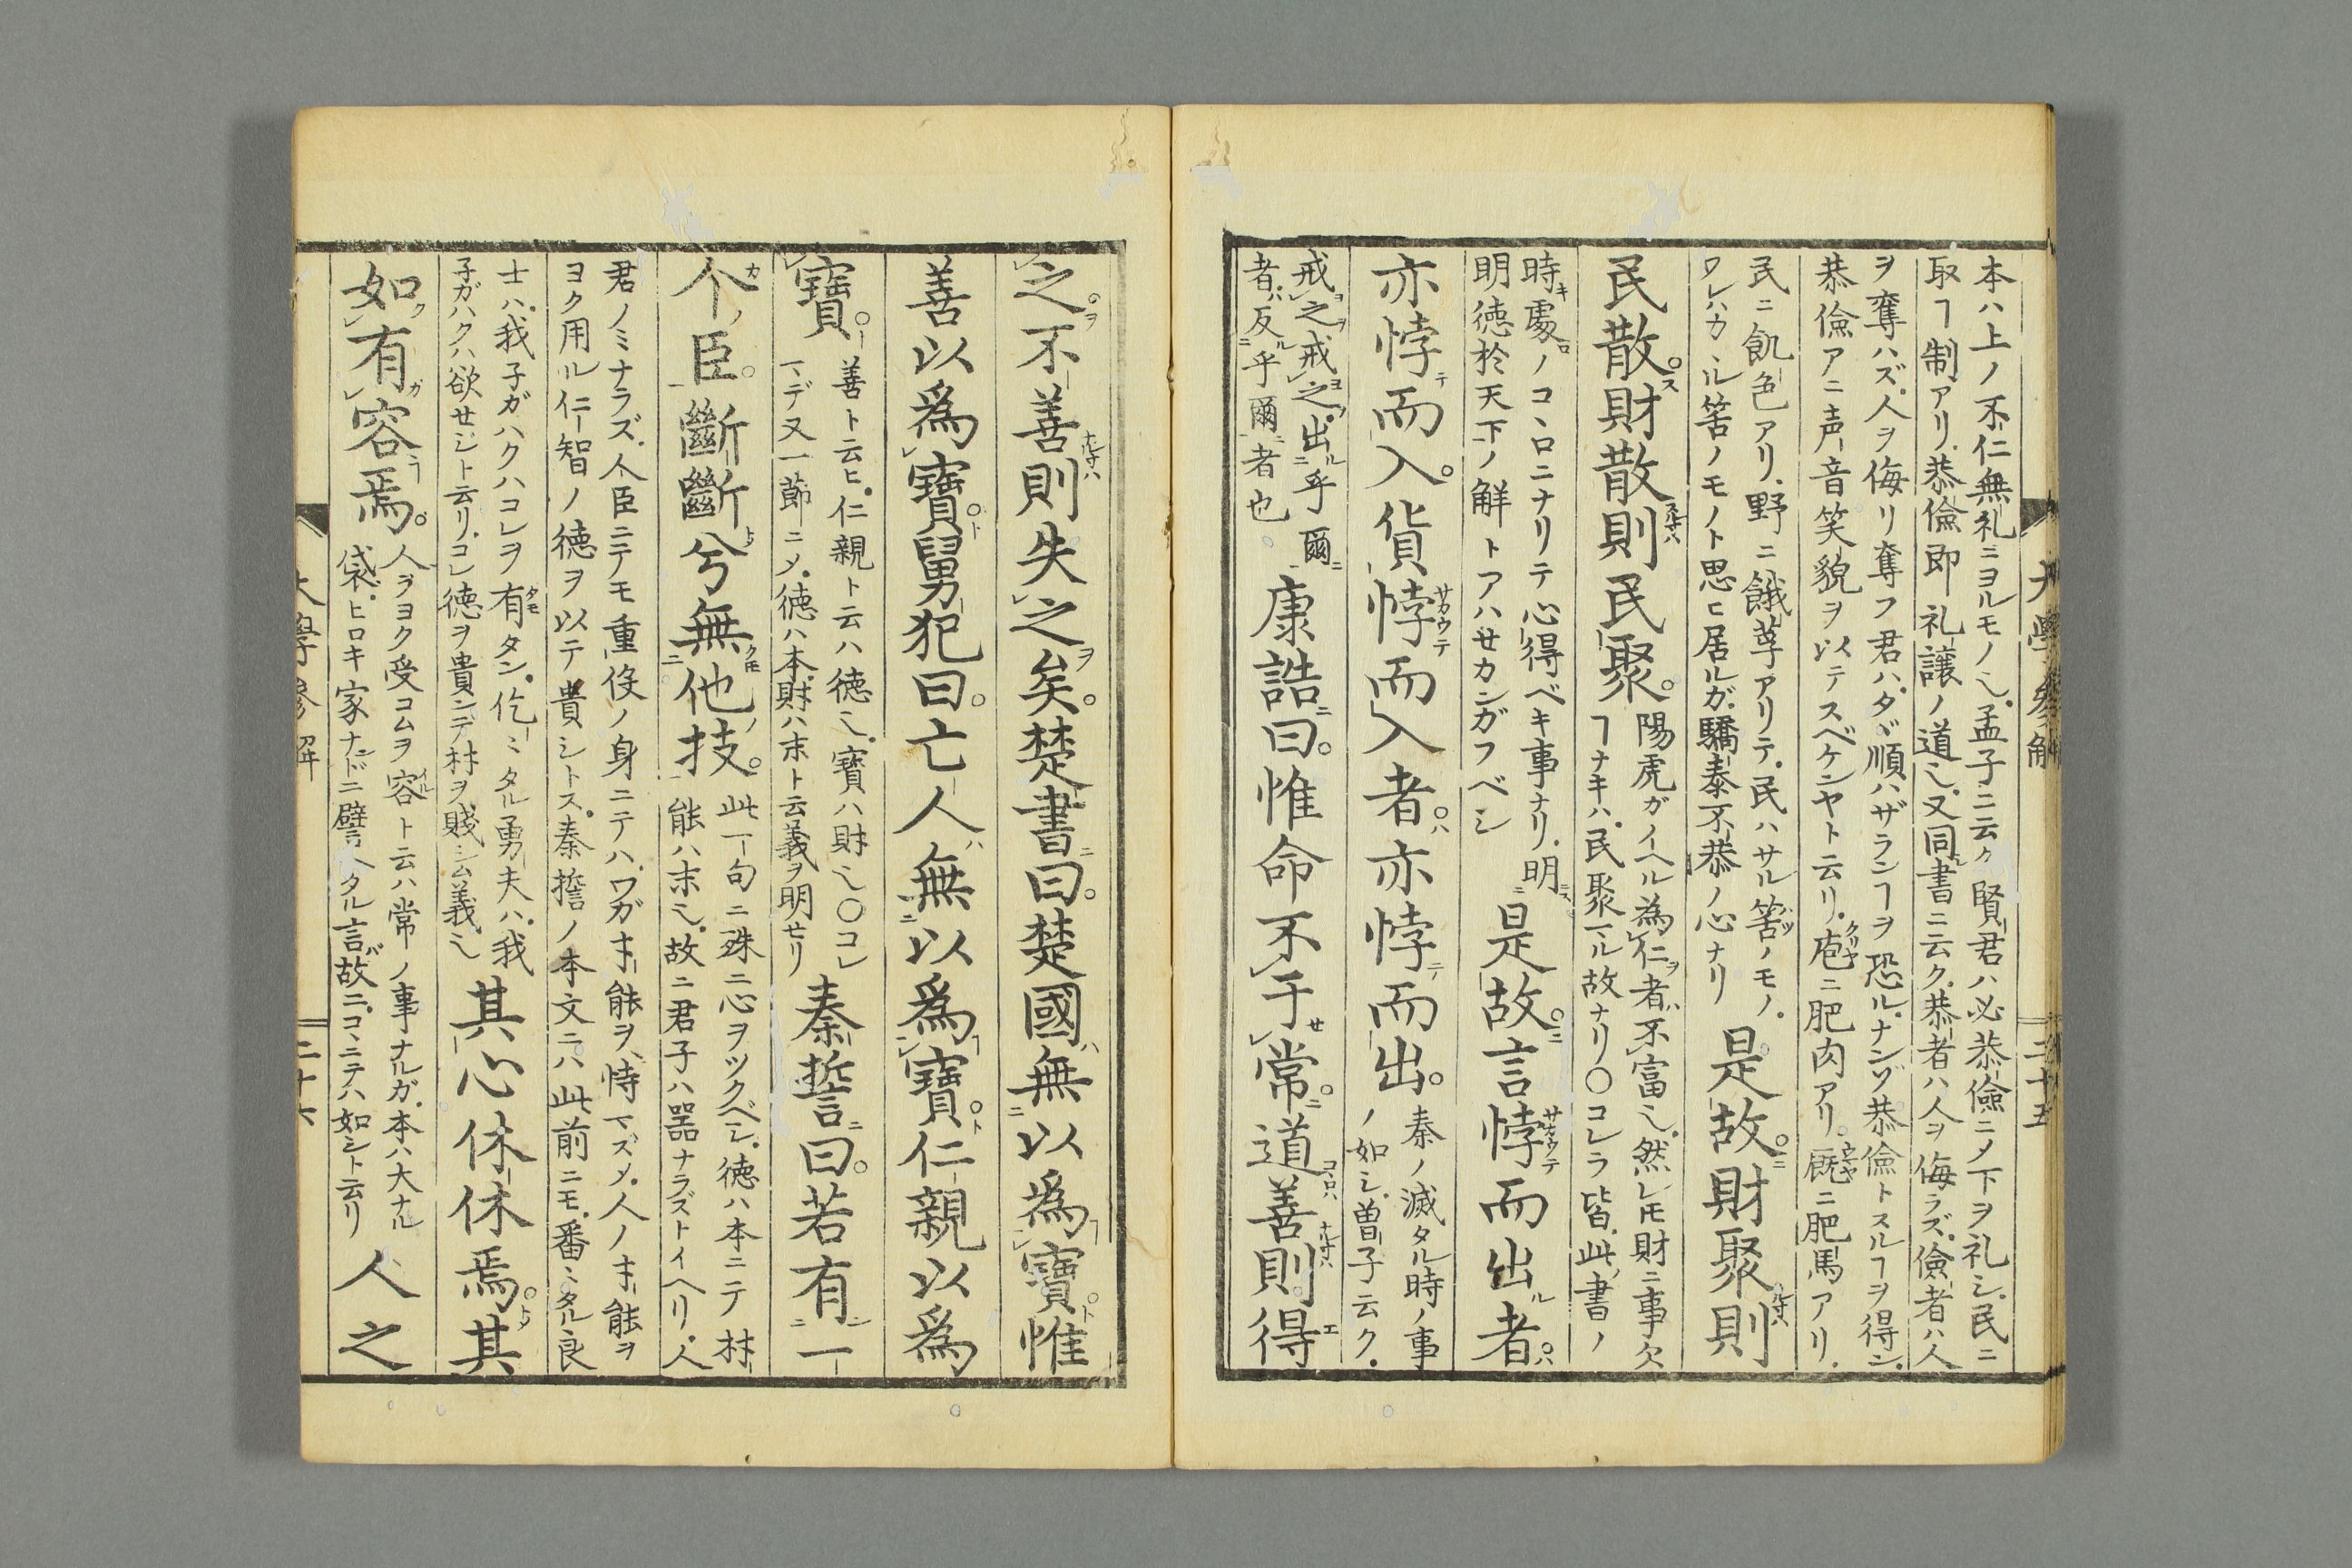 大學參解
二十五
本ハ上ノ不仁無礼ニヨルモノ也孟子ニ云ク賢君ハ必恭儉ニメ下ヲ礼シ民ニ
取ヿ制アリ恭儉即礼譲ノ道也又同書ニ云ク恭者ハ人ヲ侮ラズ儉者ハ人
ヲ奪ハズ人ヲ侮リ奪フ君ハタヾ順ハザランヿヲ恐ルナンゾ恭儉トスルヿヲ得ン
恭儉アニ声音笑貌ヲ以テスベケンヤト云リ庖ニ肥肉アリ厩ニ肥馬アリ
民ニ飢色アリ野ニ餓莩アリテ民ハサル筈ノモノ
ワレハカヽル筈ノモノト思ヒ居ルガ驕泰不恭ノ心ナリ
是故財聚則
民散財散則民聚
陽虎ガイヘル為仁者不富也然レ𪜈財ニ事欠
ヿナキハ民聚マル故ナリ〇コレラ皆此書ノ
時處ノコヽロニナリテ心得ベキ事ナリ明
明徳於天下ノ解トアハセカンガフベシ
是故言悖而出者
亦悖而入貨悖而入者亦悖而出
秦ノ滅タル時ノ事
ノ如シ曽子云ク
戒之戒之出乎爾
者反乎爾者也
康誥曰惟命不于常道善則得
之不善則失之矣楚書曰楚國無以爲寶惟
善以爲寶舅犯曰亡人無以爲寶仁親以爲
寶
善ト云ヒ仁親ト云ハ徳也寳ハ財也〇コレ
マデ又一節ニメ徳ハ本財ハ末ト云義ヲ明セリ
秦誓曰若有一
个臣斷斷兮無他技
此一句ニ殊ニ心ヲツクベシ徳ハ本ニテ材
能ハ末也故ニ君子ハ器ナラズトイヘリ人
君ノミナラズ人臣ニテモ重役ノ身ニテハワガ才能ヲ恃マズメ人ノ才能ヲ
ヨク用ル仁智ノ徳ヲ以テ貴シトス秦誓ノ本文ニハ此前ニモ番〻タル良
士ハ我子ガハクハコレヲ有タン仡〻タル勇夫ハ我
子ガハクハ欲セジト云リコレ徳ヲ貴ンデ材ヲ賤シム義也
其心休休焉其
如有容焉
人ヲヨク受コムヲ容ト云ハ常ノ事ナルガ本ハ大ナル
袋ヒロキ家ナドニ譬ヘタル言故ニコヽニテハ如シト云リ
人之
大學參解
二十六